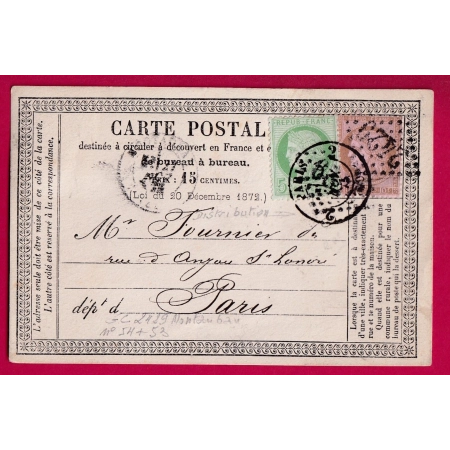 REPUB. FRANC.
5
2422
CARTE POSTALE
destinée à circuler à découvert en France et e
de bureau à bureau.
PRIX : 15 CENTIMES.
(Loi du 20 Décembre 1872.)
Distribution
Mr Tournier
rue d'Anjou St Honoré
dépt d Paris
Montauban
nº 54 + 52
L'adresse seule doit être mise de ce côté de la carte.
L'autre côté est réservé à la correspondance.
Lorsque la carte est
d'une ville, indiquer très-exactement la
rue et le numéro de la maison.
Quand elle est destinée pour une
commune rurale, indiquer le nom du
bureau de poste qui la dessert.